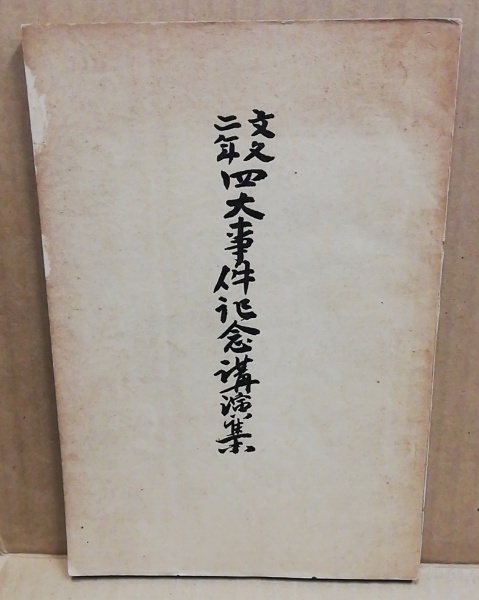 文久
二年
四大事件記念講演集